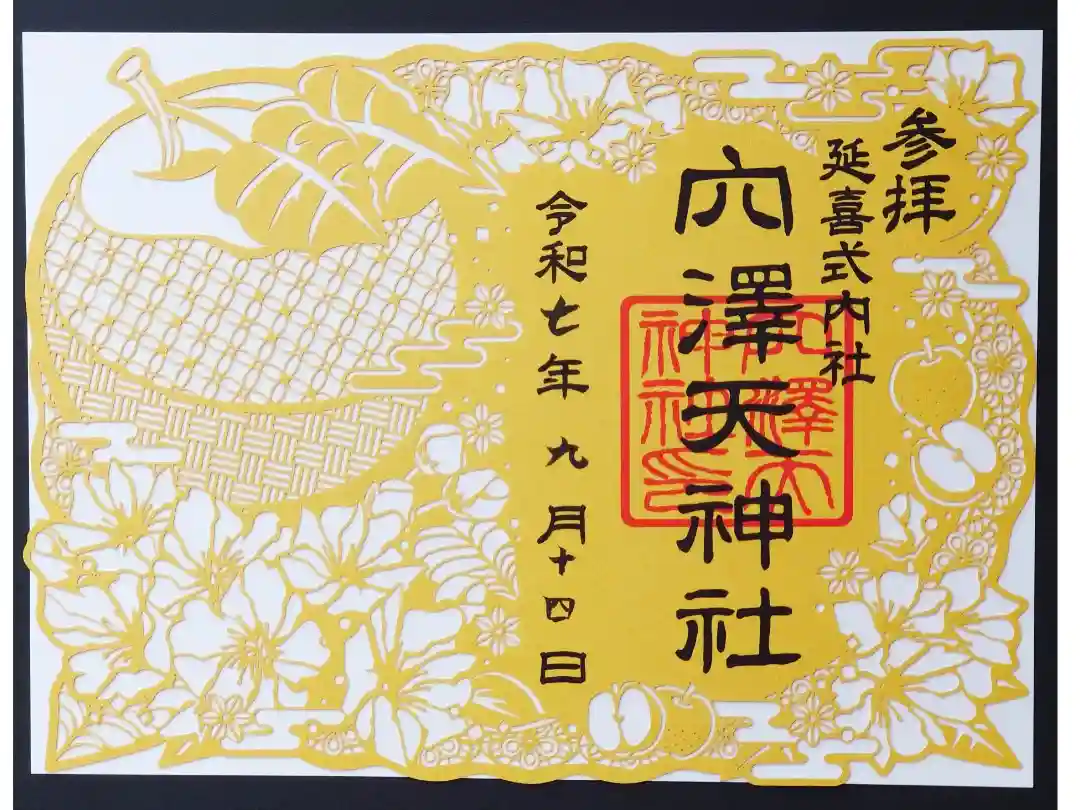 参拝
延喜式内社
穴澤天神社
穴澤天
神社
神社印
令和七年 九月十四日